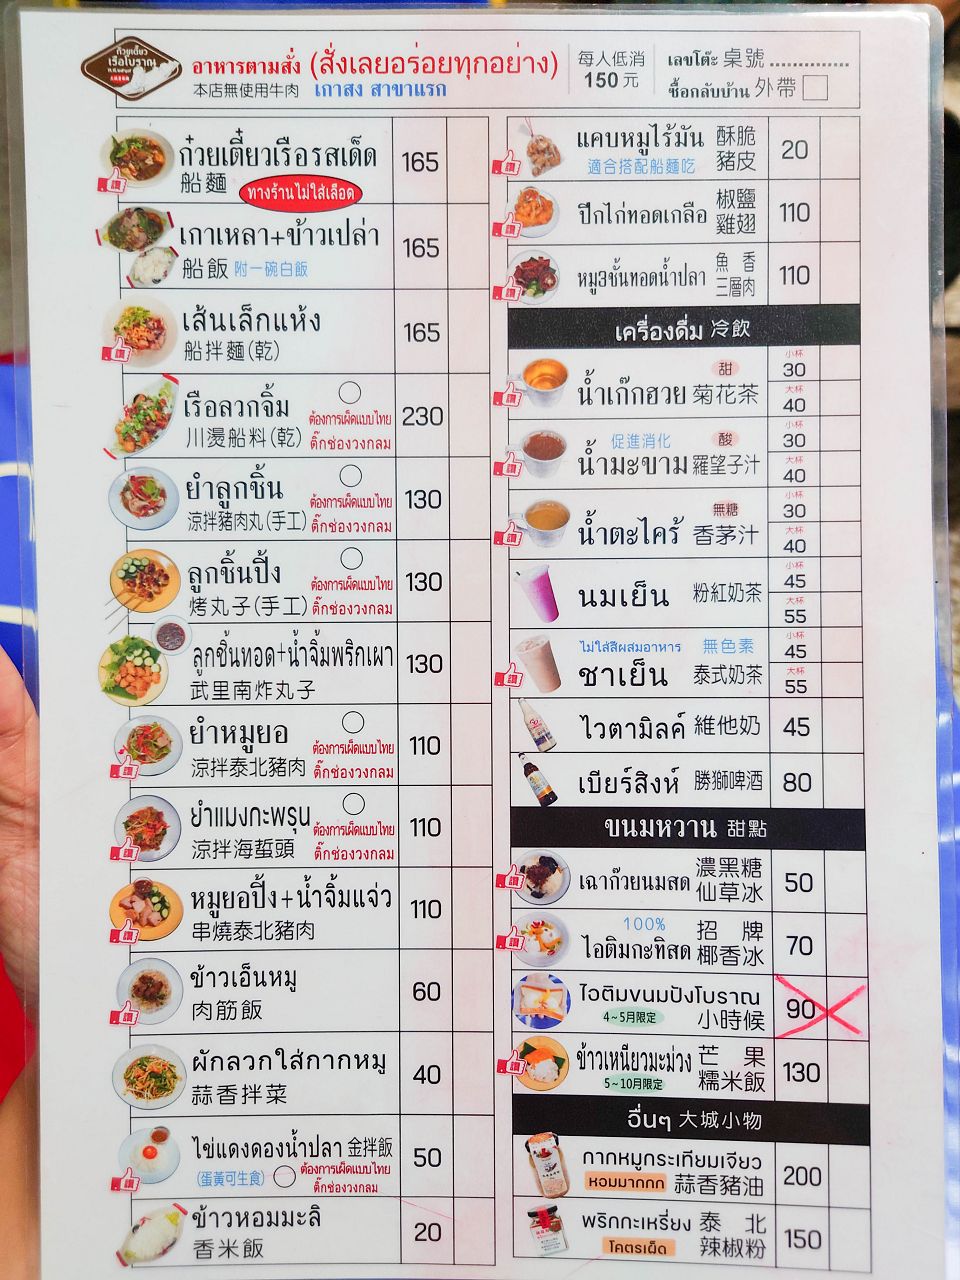 ก๋วยเตี๋ยว
เรือโบราณ
อาหารตามสั่ง (สั่งเลยอร่อยทุกอย่าง)
本店無使用牛肉 เกาสง สาขาแรก
每人低消
150元
เลขโต๊ะ 桌號
ซื้อกลับบ้าน 外帶
ก๋วยเตี๋ยวเรือรสเด็ด
船麵 ทางร้านไม่ใส่เลือด
165
讚
เกาเหลา+ข้าวเปล่า
船飯 附一碗白飯
165
เส้นเล็กแห้ง
船拌麵(乾)
165
讚
เรือลวกจิ้ม
川燙船料(乾)
ต้องการเผ็ดแบบไทย
ติ๊กช่องวงกลม
230
讚
ยำลูกชิ้น
涼拌豬肉丸(手工)
ต้องการเผ็ดแบบไทย
ติ๊กช่องวงกลม
130
ลูกชิ้นปิ้ง
烤丸子(手工)
ต้องการเผ็ดแบบไทย
ติ๊กช่องวงกลม
130
ลูกชิ้นทอด+น้ำจิ้มพริกเผา
武里南炸丸子
130
ยำหมูยอ
涼拌泰北豬肉
ต้องการเผ็ดแบบไทย
ติ๊กช่องวงกลม
110
讚
ยำแมงกะพรุน
涼拌海蜇頭
ต้องการเผ็ดแบบไทย
ติ๊กช่องวงกลม
110
讚
หมูยอปิ้ง+น้ำจิ้มแจ่ว
串燒泰北豬肉
110
讚
ข้าวเอ็นหมู
肉筋飯
60
讚
ผักลวกใส่กากหมู
蒜香拌菜
40
ไข่แดงดองน้ำปลา 金拌飯
(蛋黃可生食) ต้องการเผ็ดแบบไทย
ติ๊กช่องวงกลม
50
讚
ข้าวหอมมะลิ
香米飯
20
แคบหมูไร้มัน 酥脆
適合搭配船麵吃 豬皮
20
讚
ปีกไก่ทอดเกลือ 椒鹽
雞翅
110
讚
หมู3ชั้นทอดน้ำปลา 魚香
三層肉
110
讚
เครื่องดื่ม 冷飲
甜
น้ำเก๊กฮวย 菊花茶
小杯
30
大杯
40
讚
促進消化 酸
น้ำมะขาม 羅望子汁
小杯
30
大杯
40
讚
無糖
น้ำตะไคร้ 香茅汁
小杯
30
大杯
40
讚
นมเย็น 粉紅奶茶
小杯
45
大杯
55
ไม่ใส่สีผสมอาหาร 無色素
ชาเย็น 泰式奶茶
小杯
45
大杯
55
讚
ไวตามิลค์ 維他奶
45
เบียร์สิงห์ 勝獅啤酒
80
ขนมหวาน 甜點
เฉาก๊วยนมสด 濃黑糖
仙草冰
50
讚
100% 招牌
ไอติมกะทิสด 椰香冰
70
讚
ไอติมขนมปังโบราณ
4~5月限定 小時候
90
ข้าวเหนียวมะม่วง 芒果
5~10月限定 糯米飯
130
讚
อื่นๆ 大城小物
กากหมูกระเทียมเจียว
หอมมากกก 蒜香豬油
200
พริกกะเหรี่ยง 泰北
โคตรเผ็ด 辣椒粉
150